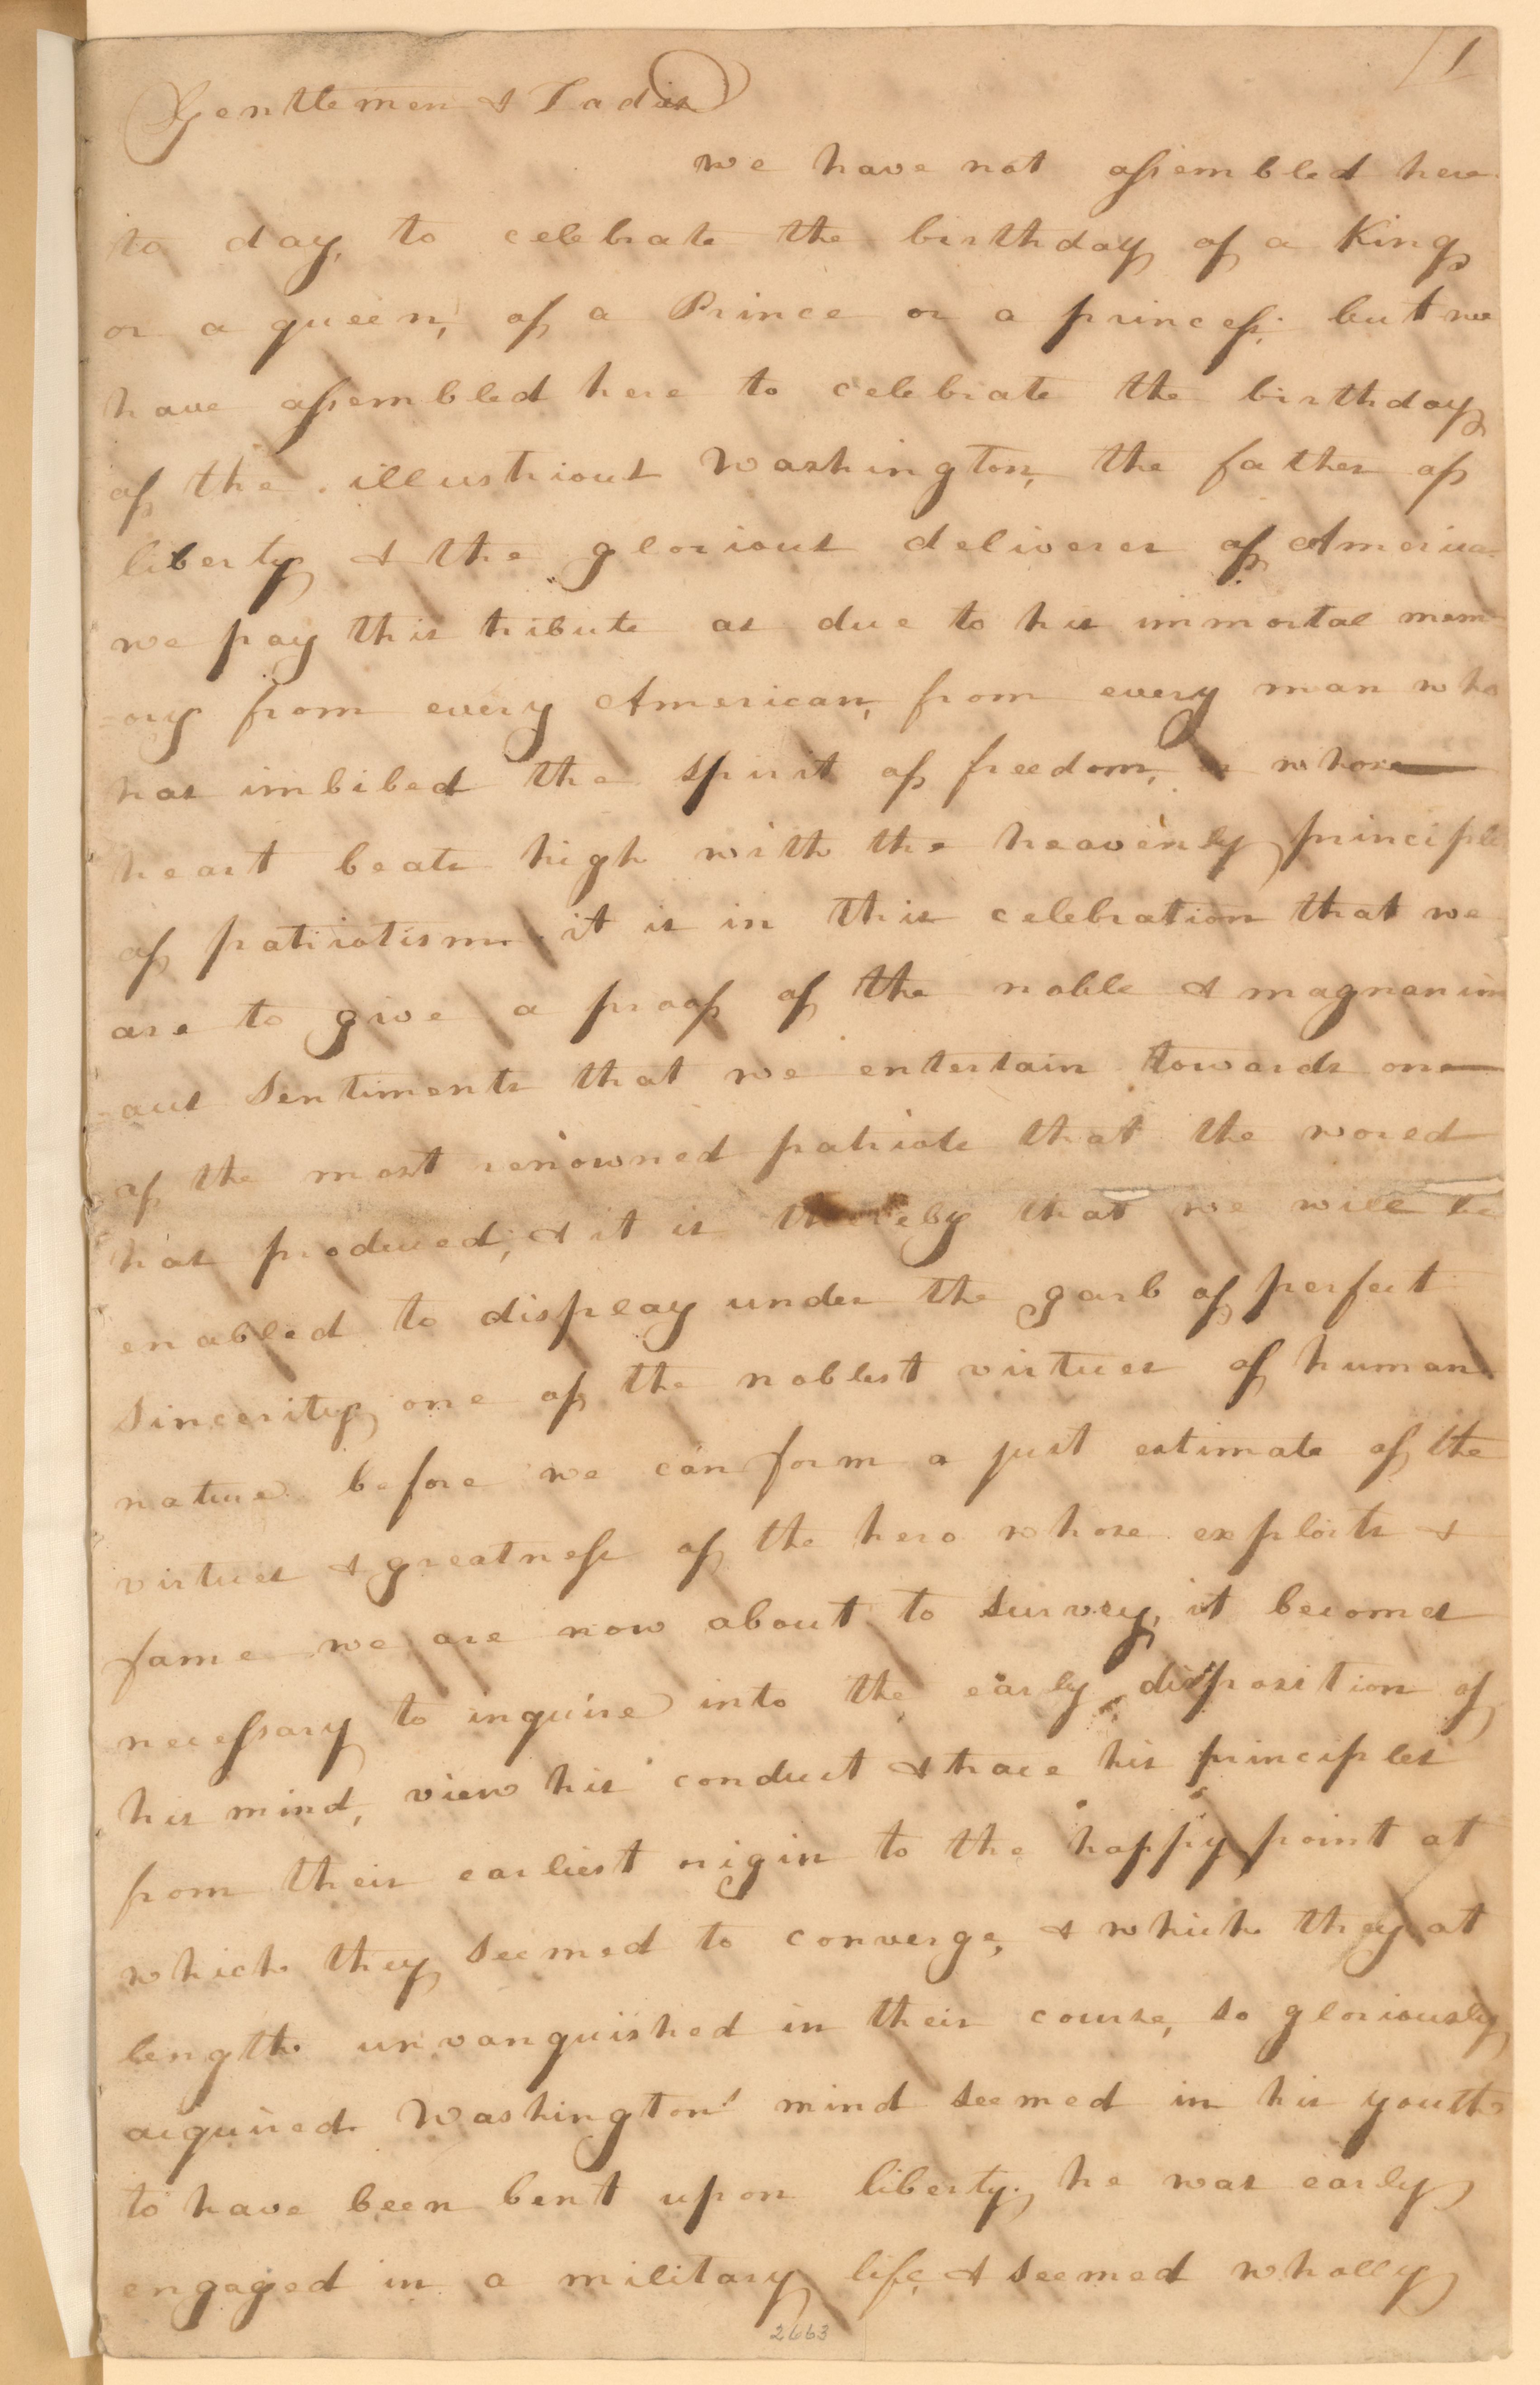 1
Gentlemen & Ladies
we have not assembled here
to day, to celebrate the birthday of a King
or a queen, of a Prince or a princess; but we
have assembled here to celebrate the birthday
of the illustrious Washington, the father of
liberty & the glorious deliverer of America
we pay this tribute as due to his immortal mem
-ory from every American, from every man who
has imbibed the spirit of freedom, or whose
heart beats high with the heavenly principle
of patriotism. it is in this celebration that we
are to give a proof of the noble & magnanim
-ous sentiments that we entertain towards one
of the most renowned patriots that the world
has produced; & it is thereby that we will be
enabled to display under the garb of perfect
sincerity, one of the noblest virtues of human
nature. before we can form a just estimate of the
virtues & greatness of the hero whose exploits &
fame we are now about to survey, it becomes
necessary to inquire into the early disposition of
his mind, view his conduct & trace his principles
from their earliest origin to the happy point at
which they seemed to converge, & which they at
length unvanquished in their course, so gloriously
acquired. Washington's mind seemed in his youth
to have been bent upon liberty. he was early
engaged in a military life, & seemed wholly
2663